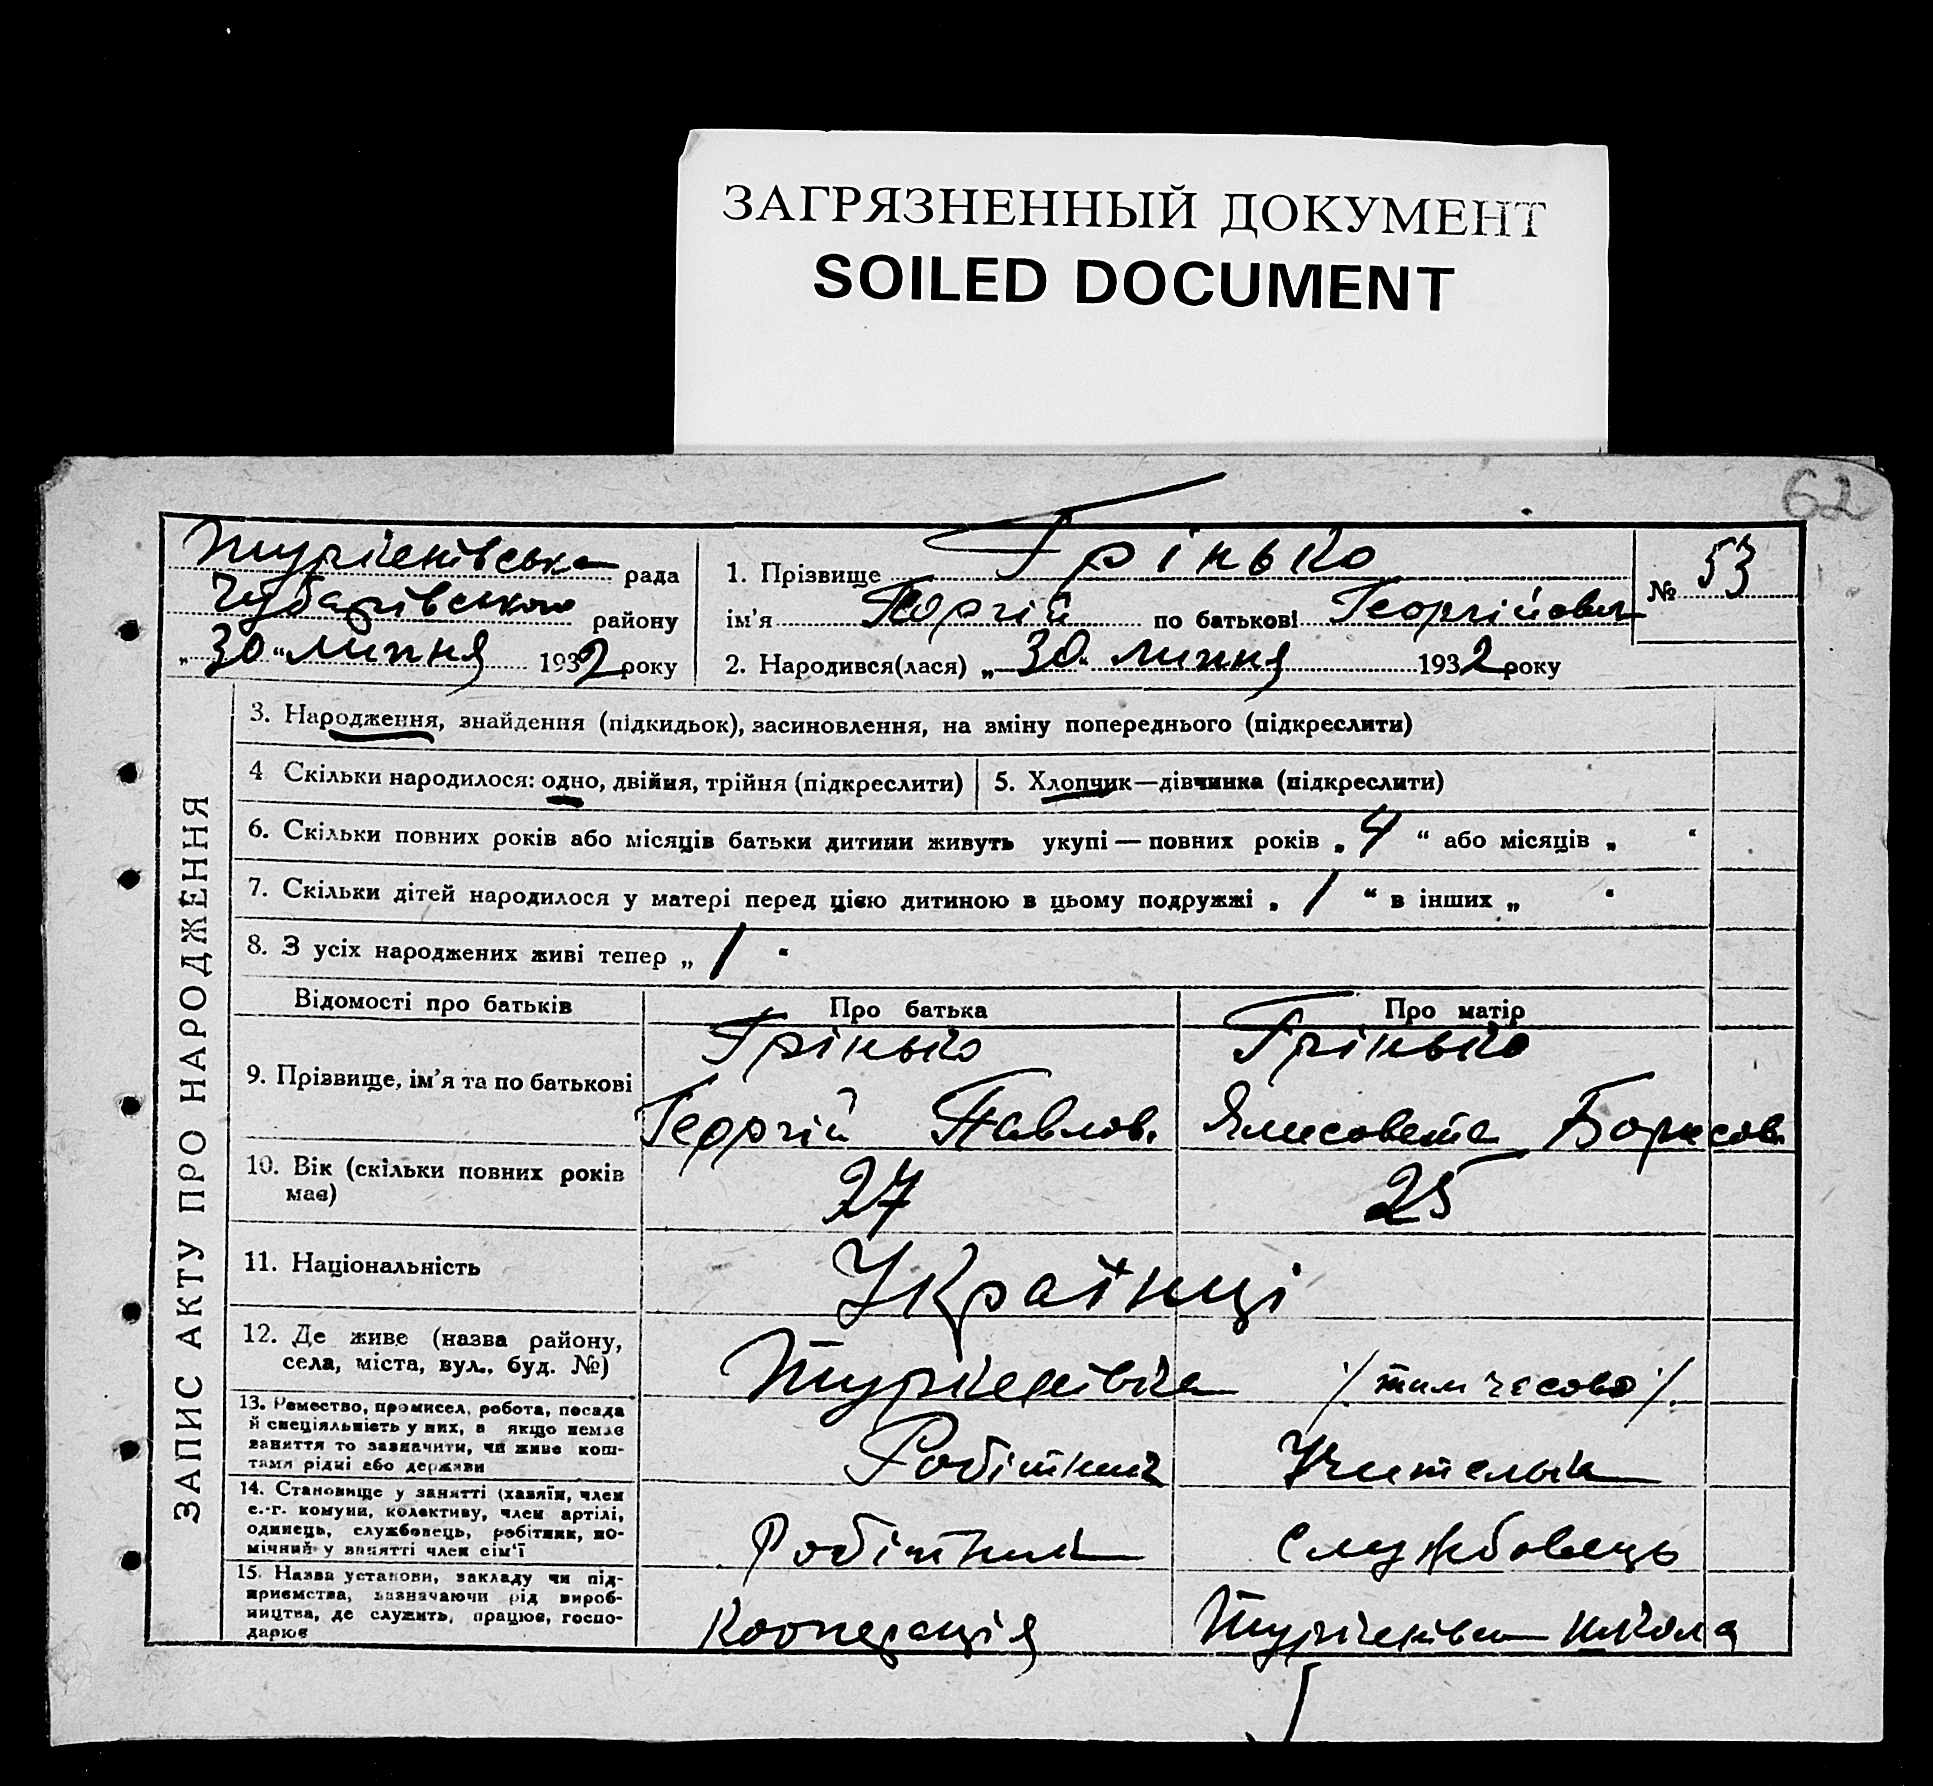 ЗАГРЯЗНЕННЫЙ ДОКУМЕНТ
SOILED DOCUMENT
62
Туркенівська рада
Чубарівського району
„30“ липня 1932 року
1. Прізвище Грінько
ім'я Георгій по батькові Георгійович
№ 53
2. Народився(лася) „30“ липня 1932 року
ЗАПИС АКТУ ПРО НАРОДЖЕННЯ
3. Народження, знайдення (підкидьок), засиновлення, на зміну попереднього (підкреслити)
4 Скільки народилося: одно, двійня, трійня (підкреслити)
5. Хлопчик—дівчинка (підкреслити)
6. Скільки повних років або місяців батьки дитини живуть укупі — повних років „ 4 “ або місяців „ “
7. Скільки дітей народилося у матері перед цією дитиною в цьому подружжі „ 1 “ в інших „ “
8. З усіх народжених живі тепер „ 1 “
Відомості про батьків Про батька Про матір
9. Прізвище, ім'я та по батькові
Грінько Грінько
Георгій Павлов. Єлисовета Борисов.
10. Вік (скільки повних років
має)
27 25
11. Національність
Українці
12. Де живе (назва району,
села, міста, вул., буд. №)
Туркенівка /тимчасово/.
13. Ремество, промисел, робота, посада
й спеціяльність у них, а якщо немає
заняття то зазначити, чи живе кош-
тами рідні або держави
Робітник Учителька
14. Становище у занятті (хазяїн, член
с.-г. комуни, колективу, член артілі,
одинець, службовець, робітник, по-
мічний у занятті член сім'ї
Робітник Службовець
15. Назва установи, закладу чи під-
приємства, зазначаючи рід вироб-
ництва, де служить, працює, госпо-
дарює
Кооперація школа